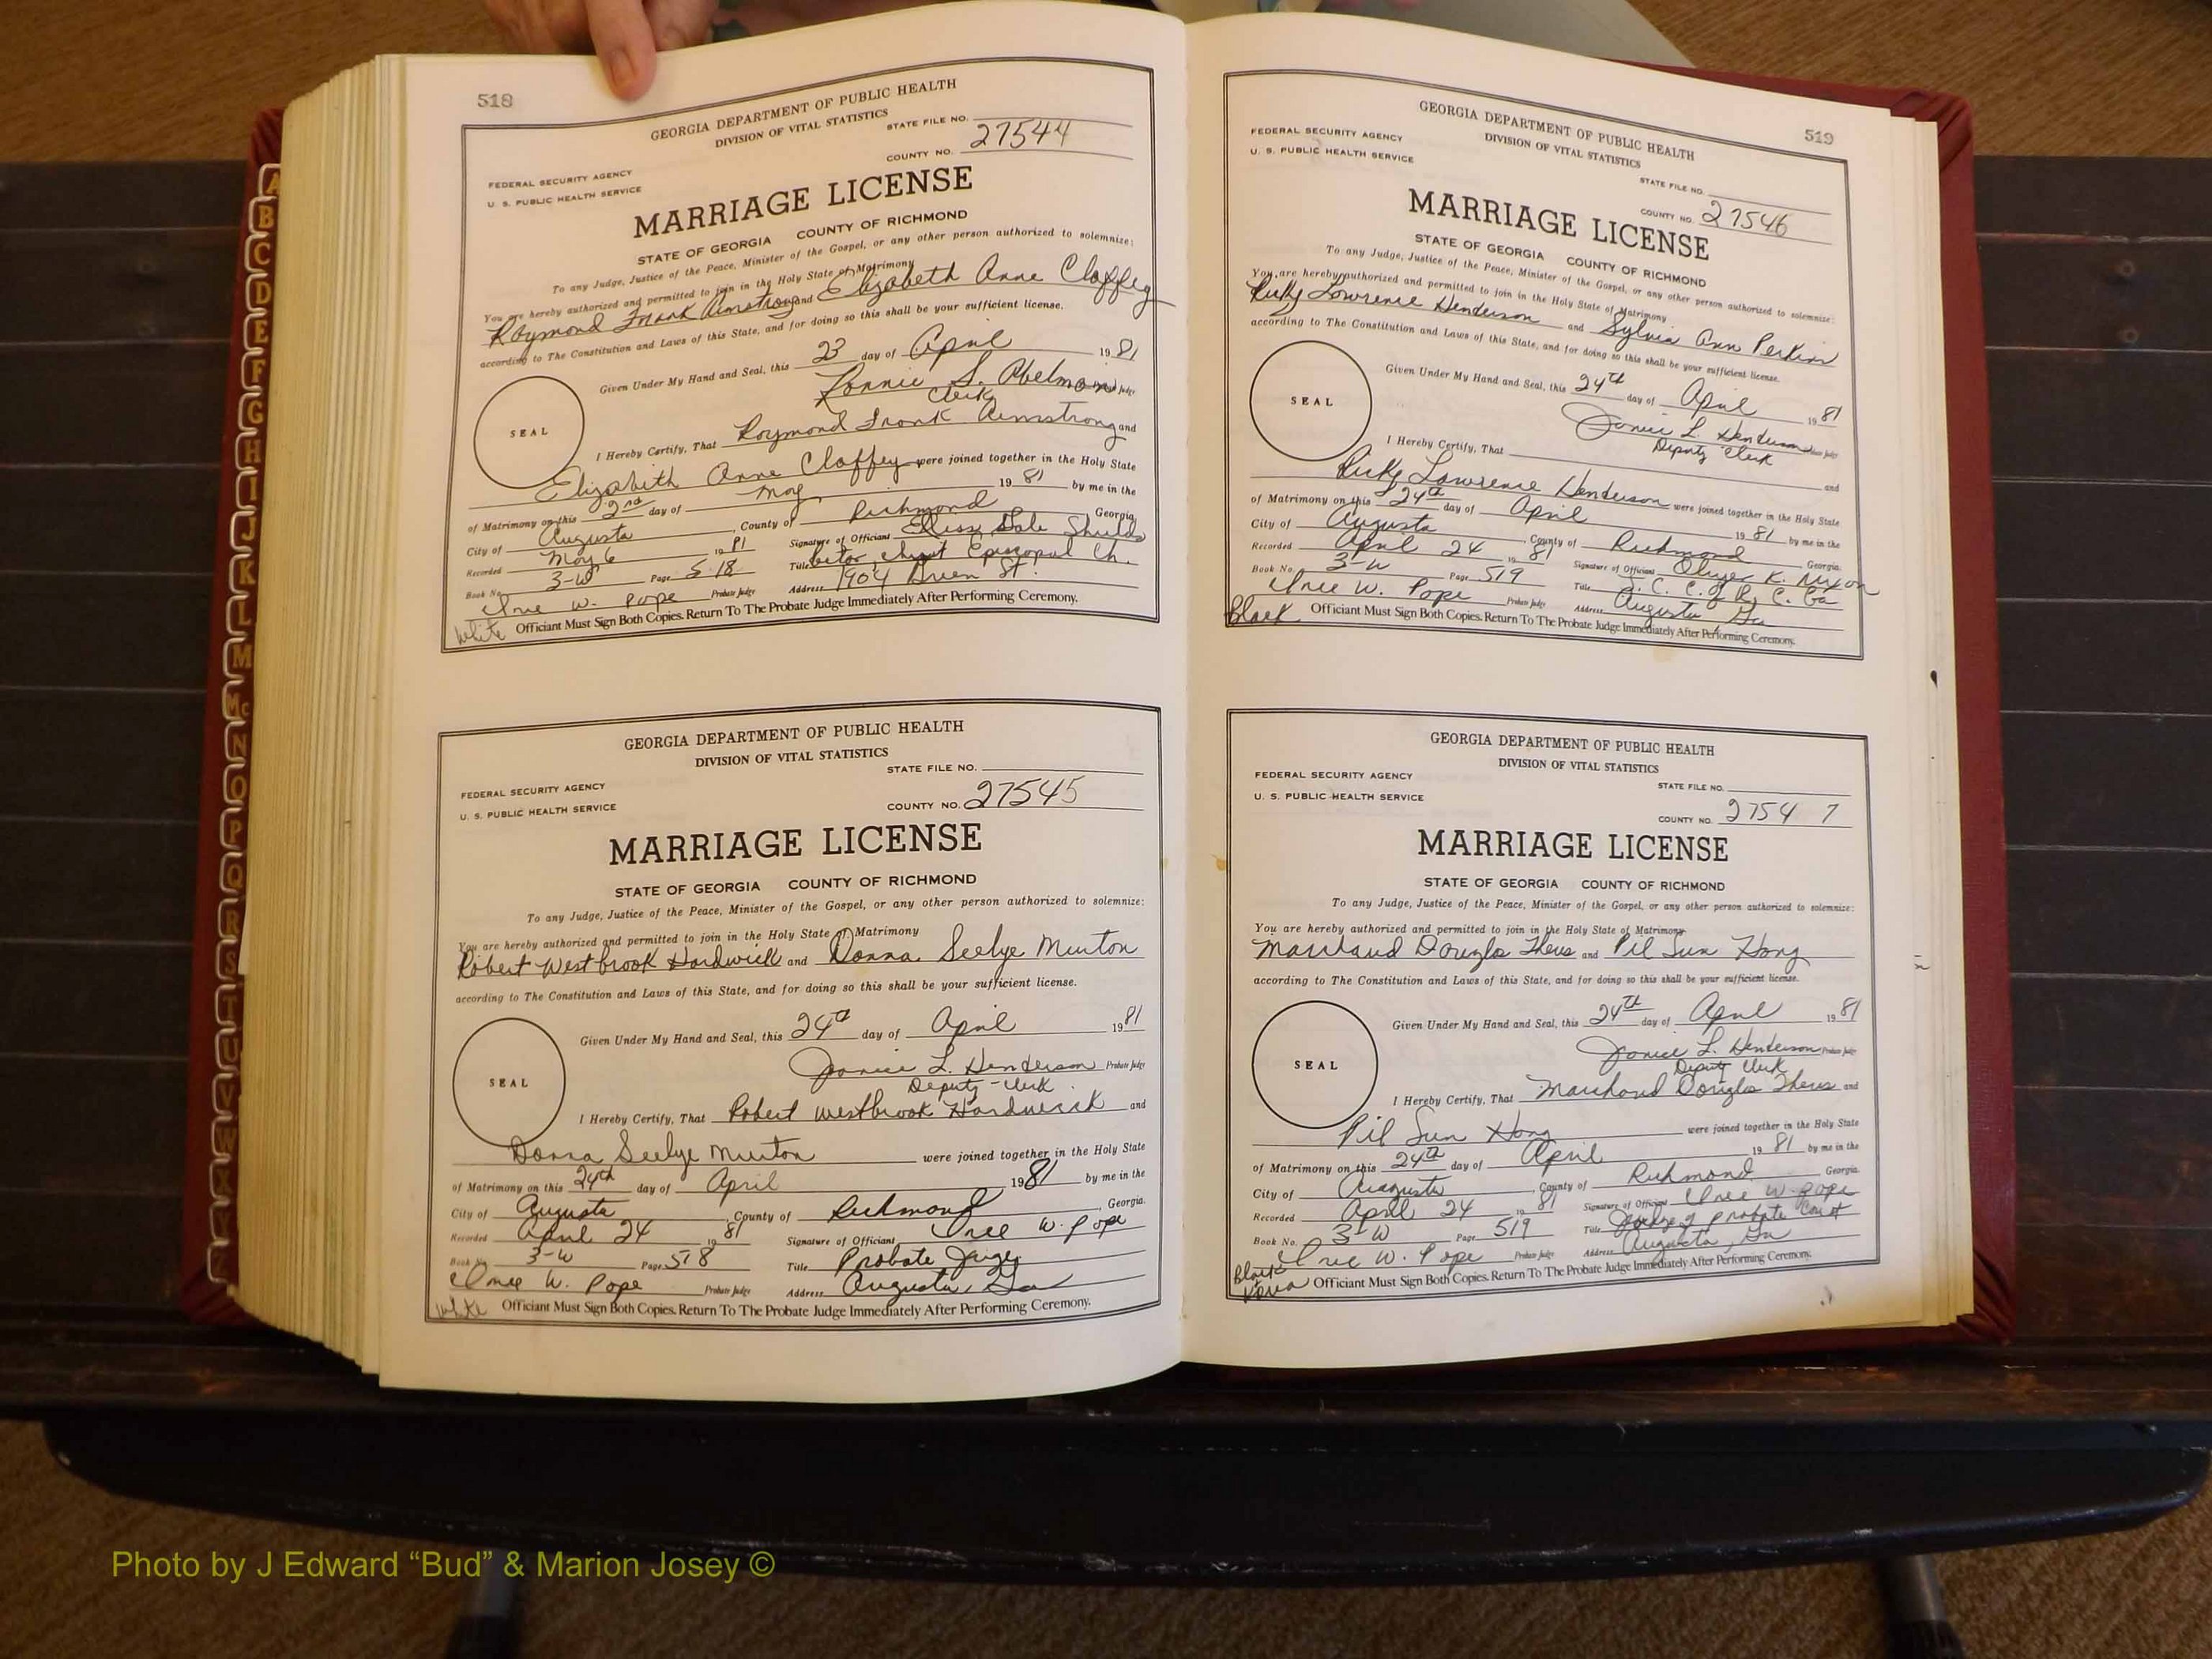 518
GEORGIA DEPARTMENT OF PUBLIC HEALTH
DIVISION OF VITAL STATISTICS
STATE FILE NO.
COUNTY NO. 27544
FEDERAL SECURITY AGENCY
U. S. PUBLIC HEALTH SERVICE
MARRIAGE LICENSE
STATE OF GEORGIA COUNTY OF RICHMOND
To any Judge, Justice of the Peace, Minister of the Gospel, or any other person authorized to solemnize:
You are hereby authorized and permitted to join in the Holy State of Matrimony
Raymond Frank Armstrong and Elizabeth Anne Claffey
according to The Constitution and Laws of this State, and for doing so this shall be your sufficient license.
Given Under My Hand and Seal, this 23 day of April 1981
Lonnie S. Abelman Probate Judge
Clerk
SEAL
I Hereby Certify, That Raymond Frank Armstrong and
Elizabeth Anne Claffey were joined together in the Holy State
of Matrimony on this 2nd day of May 1981 by me in the
City of Augusta, County of Richmond Georgia.
Recorded May 6 1981 Signature of Officiant Dale Shields
Book No. 3-W Page 518 Title Christ Episcopal Ch.
Iree W. Pope Probate Judge Address 1904 Green St.
White Officiant Must Sign Both Copies. Return To The Probate Judge Immediately After Performing Ceremony.
GEORGIA DEPARTMENT OF PUBLIC HEALTH
DIVISION OF VITAL STATISTICS
STATE FILE NO.
FEDERAL SECURITY AGENCY
U. S. PUBLIC HEALTH SERVICE
COUNTY NO. 27545
MARRIAGE LICENSE
STATE OF GEORGIA COUNTY OF RICHMOND
To any Judge, Justice of the Peace, Minister of the Gospel, or any other person authorized to solemnize:
You are hereby authorized and permitted to join in the Holy State of Matrimony
Robert Westbrook Hardwick and Donna Seelye Minton
according to The Constitution and Laws of this State, and for doing so this shall be your sufficient license.
Given Under My Hand and Seal, this 24th day of April 1981
Janice L. Henderson Probate Judge
Deputy-Clerk
SEAL
I Hereby Certify, That Robert Westbrook Hardwick and
Donna Seelye Minton were joined together in the Holy State
of Matrimony on this 24th day of April 1981 by me in the
City of Augusta, County of Richmond, Georgia.
Recorded April 24 1981 Signature of Officiant Iree W. Pope
Book No. 3-W Page 518 Title Probate Judge
Iree W. Pope Probate Judge Address Augusta, Ga
White Officiant Must Sign Both Copies. Return To The Probate Judge Immediately After Performing Ceremony.
519
GEORGIA DEPARTMENT OF PUBLIC HEALTH
DIVISION OF VITAL STATISTICS
FEDERAL SECURITY AGENCY
U. S. PUBLIC HEALTH SERVICE
STATE FILE NO.
COUNTY NO. 27546
MARRIAGE LICENSE
STATE OF GEORGIA COUNTY OF RICHMOND
To any Judge, Justice of the Peace, Minister of the Gospel, or any other person authorized to solemnize:
You are hereby authorized and permitted to join in the Holy State of Matrimony
Ricky Lawrence Henderson and Sylvia Ann Perkins
according to The Constitution and Laws of this State, and for doing so this shall be your sufficient license.
Given Under My Hand and Seal, this 24th day of April 1981
Janice L. Henderson Probate Judge
Deputy Clerk
SEAL
I Hereby Certify, That
Ricky Lawrence Henderson and
were joined together in the Holy State
of Matrimony on this 24th day of April 1981 by me in the
City of Augusta, County of Richmond Georgia.
Recorded April 24 1981 Signature of Officiant Oliver K. Mixon
Book No. 3-W Page 519 Title J. C. C. of R. C. Ga
Iree W. Pope Probate Judge Address Augusta, Ga
Black Officiant Must Sign Both Copies. Return To The Probate Judge Immediately After Performing Ceremony.
GEORGIA DEPARTMENT OF PUBLIC HEALTH
DIVISION OF VITAL STATISTICS
FEDERAL SECURITY AGENCY
U. S. PUBLIC HEALTH SERVICE
STATE FILE NO.
COUNTY NO. 27547
MARRIAGE LICENSE
STATE OF GEORGIA COUNTY OF RICHMOND
To any Judge, Justice of the Peace, Minister of the Gospel, or any other person authorized to solemnize:
You are hereby authorized and permitted to join in the Holy State of Matrimony
Marchaud Douglas Theus and Pil Sun Hong
according to The Constitution and Laws of this State, and for doing so this shall be your sufficient license.
Given Under My Hand and Seal, this 24TH day of April 1981
Janice L. Henderson Probate Judge
Deputy Clerk
SEAL
I Hereby Certify, That Marchaud Douglas Theus and
Pil Sun Hong were joined together in the Holy State
of Matrimony on this 24th day of April 1981 by me in the
City of Augusta, County of Richmond Georgia.
Recorded April 24 1981 Signature of Officiant Iree W. Pope
Book No. 3-W Page 519 Title Judge of Probate Court
Iree W. Pope Probate Judge Address Augusta, Ga
Black
Korea Officiant Must Sign Both Copies. Return To The Probate Judge Immediately After Performing Ceremony.
A
B
C
D
E
F
G
H
I
J
K
L
M
Mc
N
O
P
Q
R
S
T
U
V
W
Photo by J Edward “Bud” & Marion Josey ©